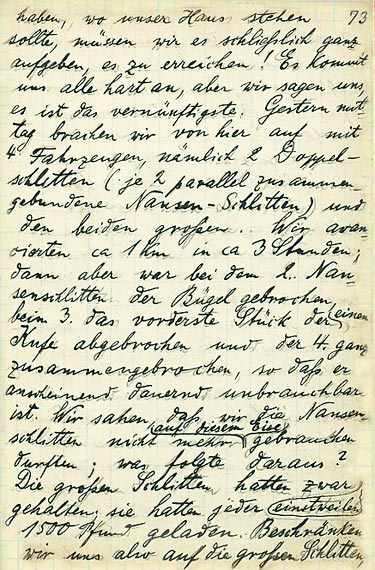 73
haben, wo unser Haus stehen
sollte, müssen wir es schließlich ganz
aufgeben, es zu erreichen! Es kommt
uns alle hart an, aber wir sagen uns,
es ist das vernünftigste. Gestern mit-
tag brachen wir von hier auf mit
4 Fahrzeugen, nämlich 2 Doppel-
schlitten (je 2 parallel zusammen-
gebundene Nansen-Schlitten) und
den beiden großen. Wir avan-
cierten ca 1 km in ca 3 Stunden;
dann aber war bei dem 2. Nan-
senschlitten der Bügel gebrochen,
beim 3. das vorderste Stück der einen
Kufe abgebrochen und der 4. ganz
zusammengebrochen, so daß er
anscheinend dauernd unbrauchbar
ist. Wir sahen, daß wir die Nansen-
schlitten auf diesem Eise nicht mehr gebrauchen
durften; was folgte daraus?
Die großen Schlitten hatten zwar
gehalten, sie hatten jeder einstweilen
1500 Pfund geladen. Beschränken
wir uns also auf die großen Schlitten,